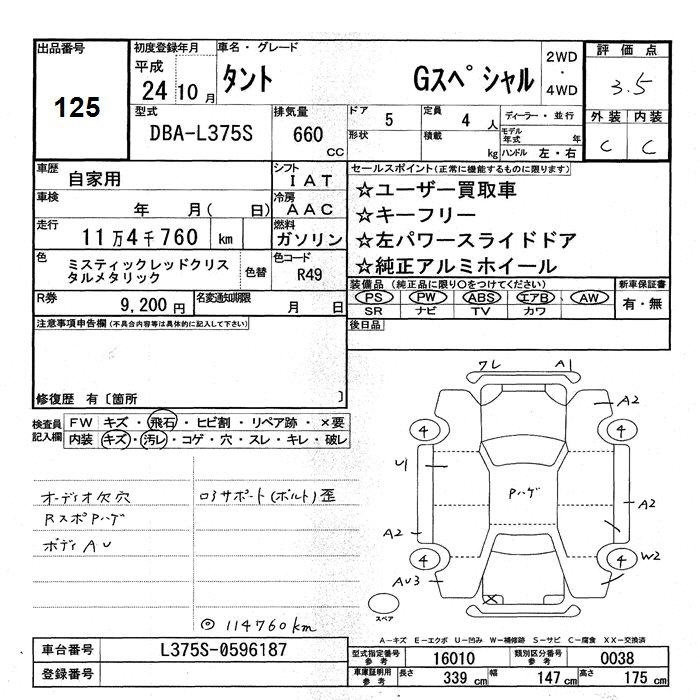 出品番号
125
初度登録年月
平成
24 10月
車名・グレード
タント Gスペシャル
2WD
・
4WD
評価点
3.5
外装 内装
C C
型式
DBA-L375S
排気量
660
CC
ドア
5
定員
4 人
形状
積載
kg
ディーラー・並行
モデル年式 年
ハンドル 左・右
車歴
自家用
シフト
IAT
車検
年 月( 日)
冷房
AAC
走行
11万4千760 km
燃料
ガソリン
色
ミスティックレッドクリス
タルメタリック
色替
色コード
R49
R券
9,200円
名変通知期限
月 日
セールスポイント(正常に機能するものに限ります)
☆ユーザー買取車
☆キーフリー
☆左パワースライドドア
☆純正アルミホイール
装備品 (純正品に限り○をつけてください)
PS PW ABS エアB AW
SR ナビ TV カワ
新車保証書
有・無
後日品
注意事項申告欄(不具合内容等は具体的に記入して下さい)
修復歴 有〔箇所 〕
検査員
記入欄
FW キズ・飛石・ヒビ割・リペア跡・×要
内装 キズ・汚レ・コゲ・穴・スレ・キレ・破レ
オーディオ欠穴
Rスポ Pハゲ
ボディ AU
ロアサポート(ボルト)歪
◎ 114760km
ワレ A1
A2
4 4
U1
Pハゲ
A2
A2
4 4
W2
AU3
×
スペア
A-キズ E-エクボ U-凹み W-補修跡 S-サビ C-腐食 XX-交換済
車台番号
L375S-0596187
登録番号
型式指定番号
参考
16010
類別区分番号
参考
0038
車庫証明用
参考
長さ
339 cm
幅
147 cm
高さ
175 cm